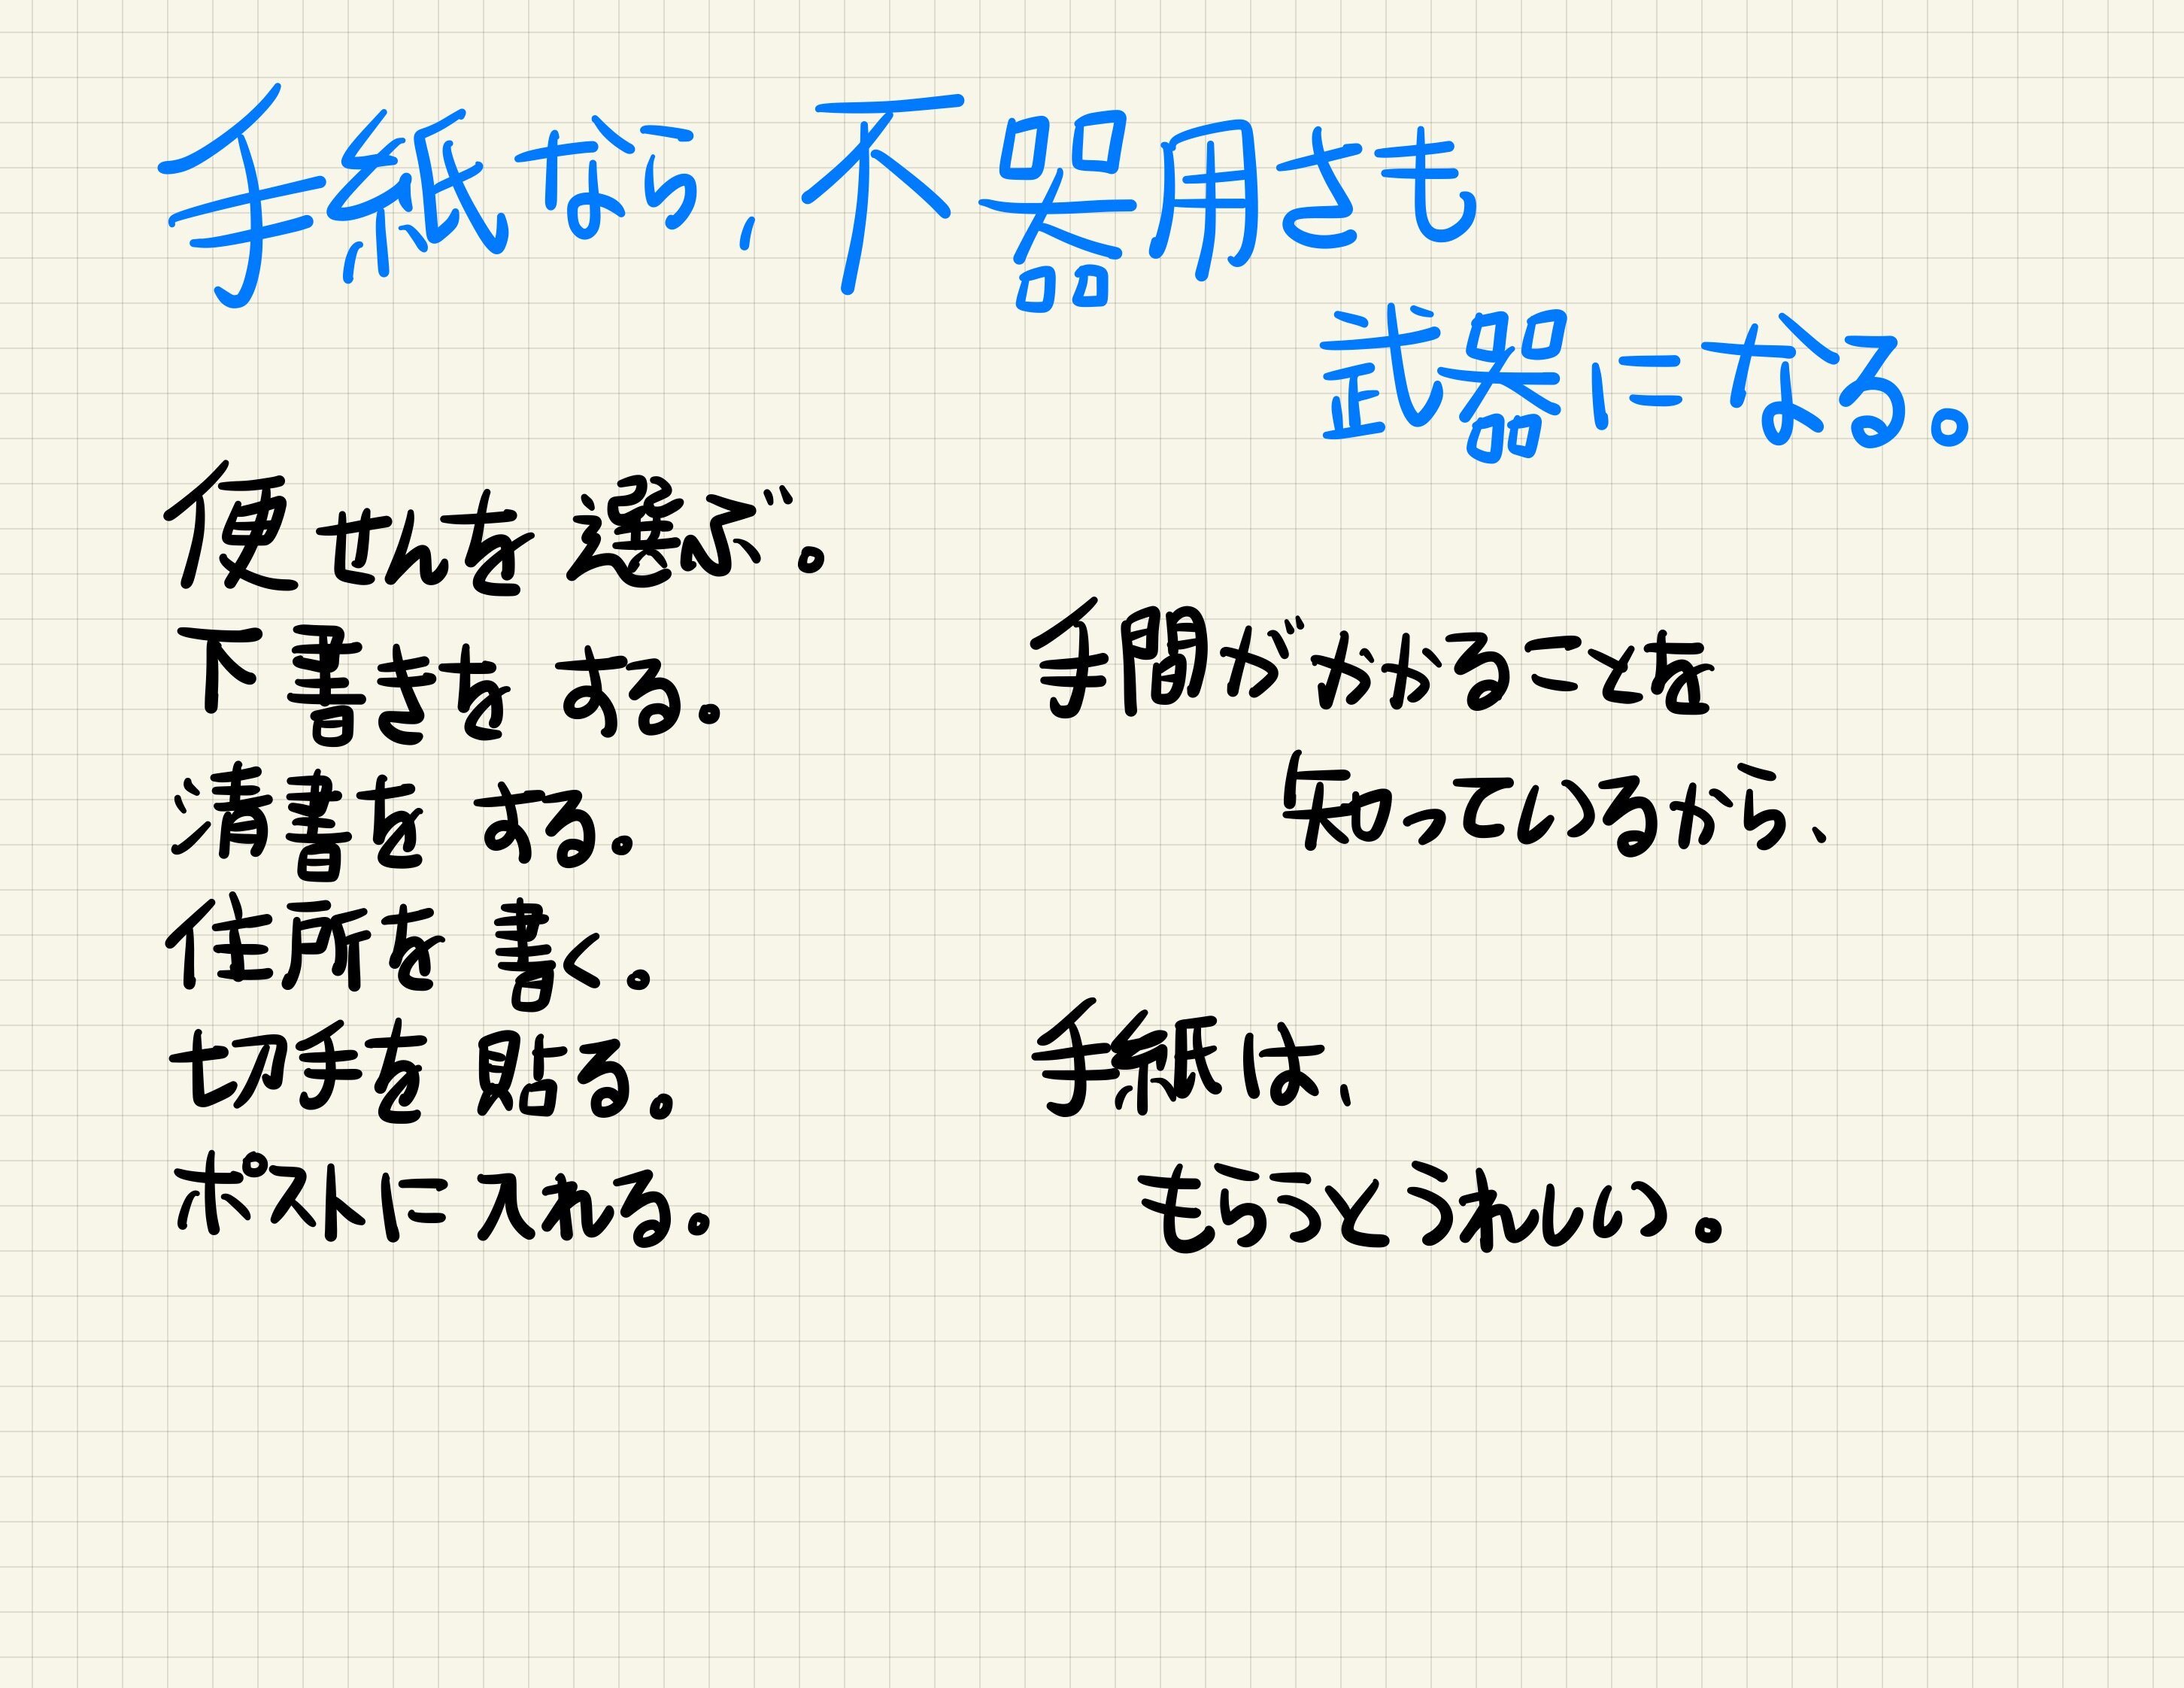 手紙なら、不器用さも
武器になる。
便せんを選ぶ。
下書きをする。
清書をする。
住所を書く。
切手を貼る。
ポストに入れる。
手間がかかることを
知っているから、
手紙は、
もらうとうれしい。